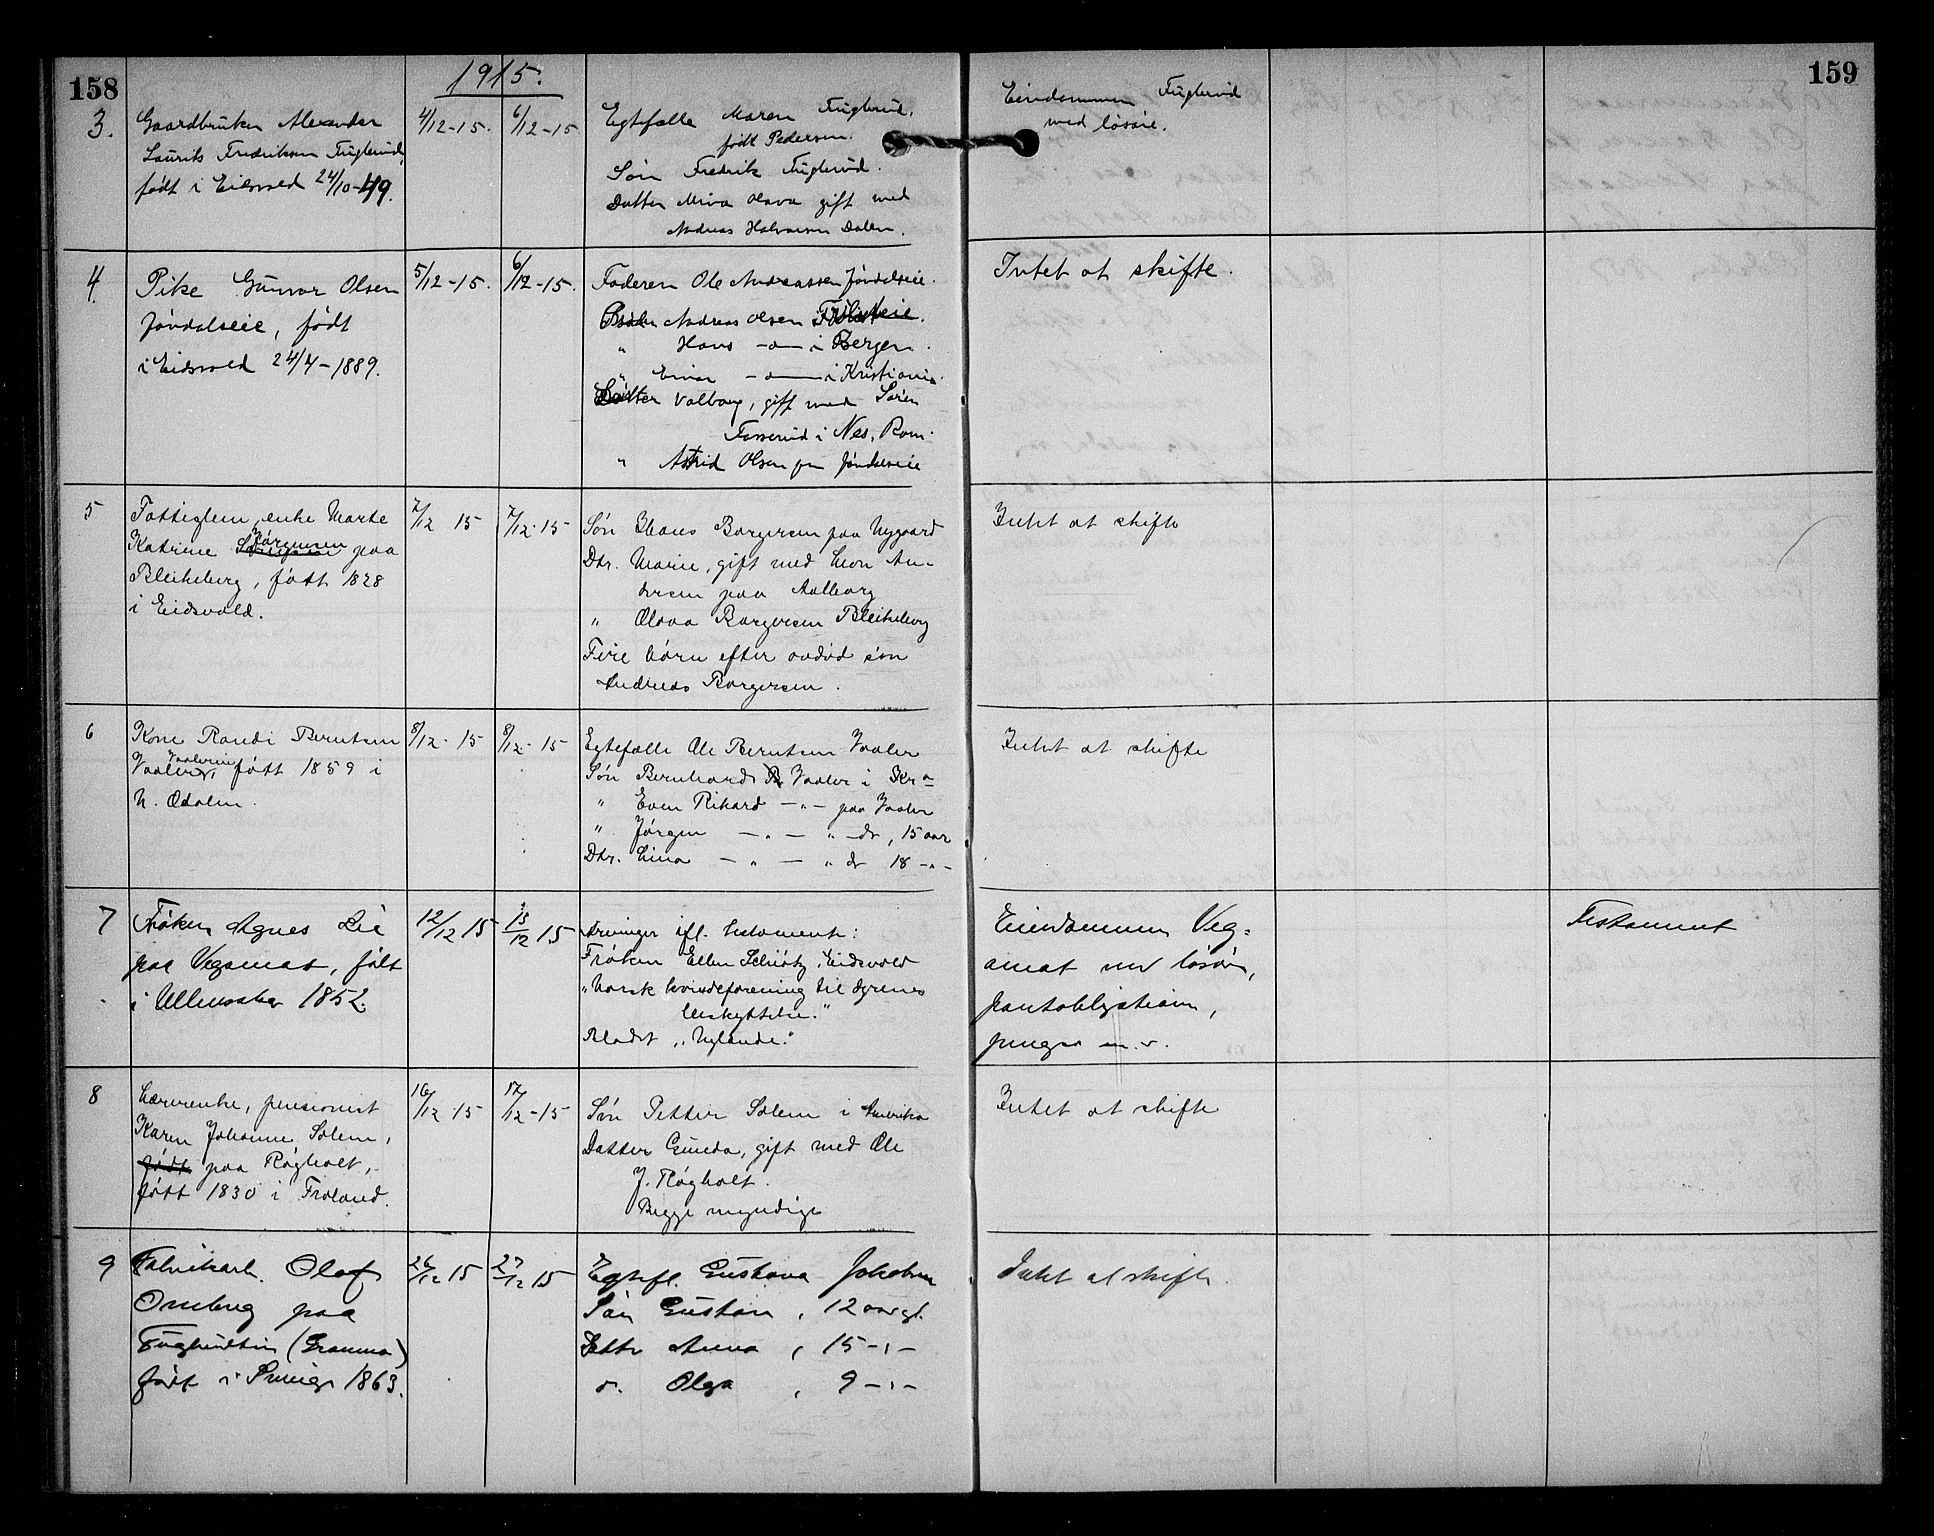 158
1915.
159
3.
Gaardbruker Alexander
Laurits Fredriksen Fuglerud,
født i Eidsvold 24/10-49.
4/12-15.
6/12-15
Egtefælle Maren Fuglerud,
født Pedersen.
Søn Fredrik Fuglerud.
Datter Olava gift med
Andreas Halvorsen Dalen.
Eiendommen Fuglerud
med løsøre.
4.
Pike Gunvor Olsen
Jøndalseie, født
i Eidsvold 24/4-1889.
5/12-15.
6/12-15.
Faderen Ole Andreassen Jøndalseie.
Andreas Olsen
" Hans -o- i Bergen.
" Einar -o- i Kristiania.
Datter Valborg, gift med Søren
Fosserud i Nes, Rom.
" Astrid Olsen pr Jøndalseie
Intet at skifte.
5
Fattiglem, enke Marte
Katrine Jørgensen paa
Bleikeberg, født 1828
i Eidsvold.
7/12 15
7/12-15
Søn Hans Borgersen paa Nygaard
Dtr. Marie, gift med An-
dersen paa Aalborg
" Olava Borgersen Bleikeberg
Fire børn efter avdød søn
Andreas Borgersen.
Intet at skifte
6
Kone Randi Berntsen
Vaaler, født 1859 i
N. Odalen.
8/12-15
8/12-15
Egtefælle Ole Berntsen Vaaler
Søn Bernhard Vaaler i Kr a
" Even Rikard -"- paa Vaaler
" Jørgen -"- " do, 15 aar
Dtr. Lina -"- " do 18 -"-
Intet at skifte
7
Frøken Agnes Lie
paa Vegamot, født
i Ullensaker 1852.
12/12 15
15/12 15
Arvinger ifl. testament:
Frøken Ellen Schiøtz, Eidsvold
"Norsk kvindeforening til dyrenes
beskyttelse."
Bladet "Nylænde."
Eiendommen Veg=
amot med løsøre,
pantobligationer,
penger m.v.
Testament
8
Lærerenke, pensionist
Karen Johanne Solem,
født paa Røgholt,
født 1830 i Froland.
16/12 15
17/12-15
Søn Petter Solem i Amerika
Datter Gunda, gift med Ole
J. Røgholt.
Begge myndige
Intet at skifte
9
Fabrikarb. Olof
paa
(Gramma)
født i Sverige 1863.
26/12 15
27/12 15
Egtefl. Gustava Jakobsen
Søn Gustav, 12 aar gl.
Dattr Anna, 15 -"-
do. Olga, 9 -"-
Intet at skifte.